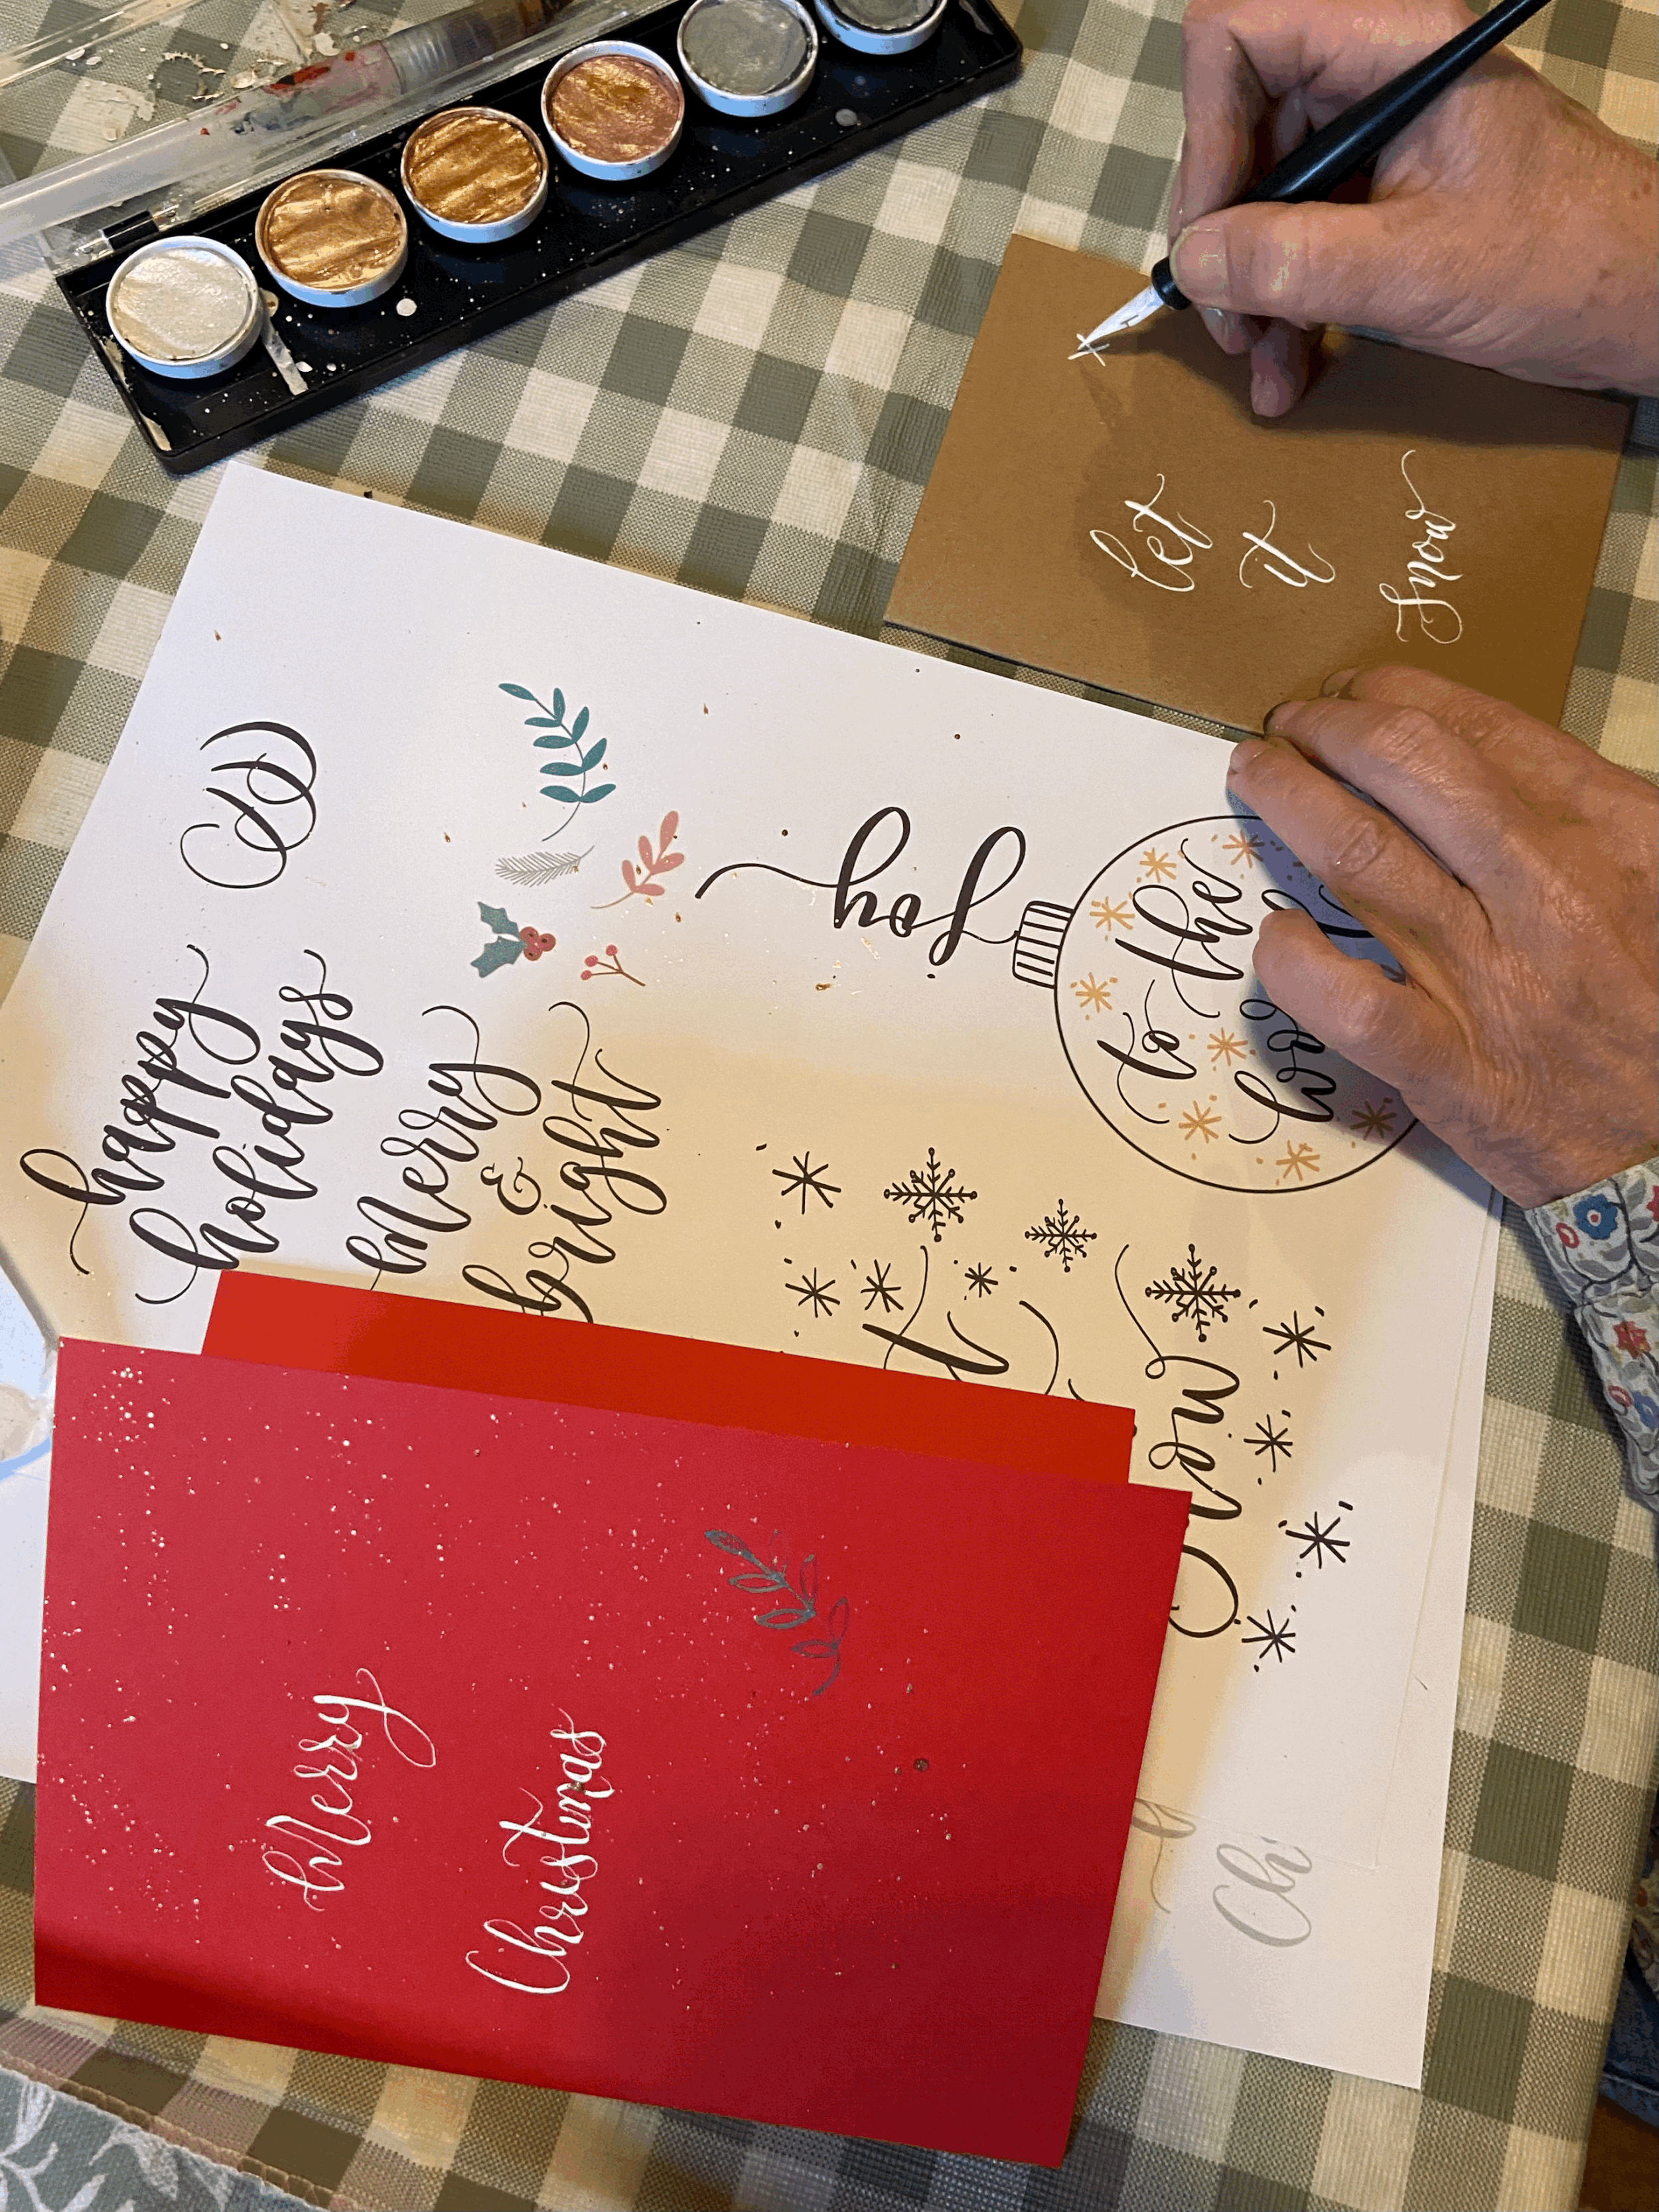 let
it
snow
happy
holidays
Merry
&
bright
Joy
to the
Merry
Christmas
Ch